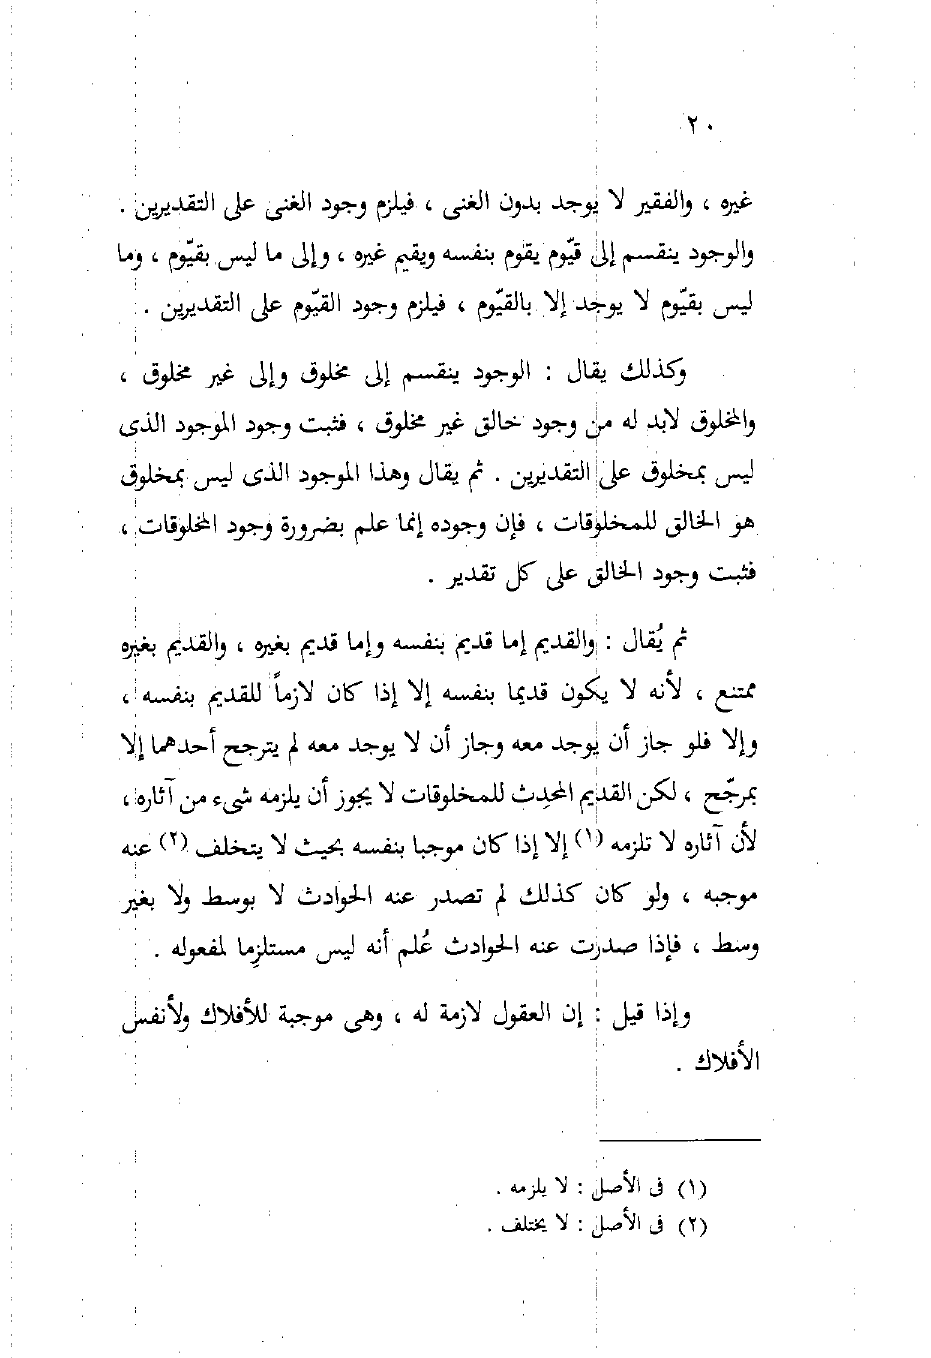 ٢٠
غيره ، والفقير لا يوجد بدون الغنى ، فيلزم وجود الغنى على التقديرين .
والوجود ينقسم إلى قيّوم يقوم بنفسه ويقيم غيره ، وإلى ما ليس بقيّوم ، وما
ليس بقيّوم لا يوجد إلا بالقيّوم ، فيلزم وجود القيّوم على التقديرين .
وكذلك يقال : الوجود ينقسم إلى مخلوق وإلى غير مخلوق ،
والمخلوق لابد له من وجود خالق غير مخلوق ، فثبت وجود الموجود الذى
ليس بمخلوق على التقديرين . ثم يقال وهذا الموجود الذى ليس بمخلوق
هو الخالق للمخلوقات ، فإن وجوده إنما علم بضرورة وجود المخلوقات ،
فثبت وجود الخالق على كل تقدير .
ثم يُقال : والقديم إما قديم بنفسه وإما قديم بغيره ، والقديم بغيره
ممتنع ، لأنه لا يكون قديما بنفسه إلا إذا كان لازماً للقديم بنفسه ،
وإلا فلو جاز أن يوجد معه وجاز أن لا يوجد معه لم يترجح أحدهما إلا
بمرجّح ، لكن القديم المحدِث للمخلوقات لا يجوز أن يلزمه شىء من آثاره ،
لأن آثاره لا تلزمه (١) إلا إذا كان موجبا بنفسه بحيث لا يتخلف (٢) عنه
موجبه ، ولو كان كذلك لم تصدر عنه الحوادث لا بوسط ولا بغير
وسط ، فإذا صدرت عنه الحوادث عُلم أنه ليس مستلزِما لمفعوله .
وإذا قيل : إن العقول لازمة له ، وهى موجبة للأفلاك ولأنفس
الأفلاك .
(١) فى الأصل : لا يلزمه .
(٢) فى الأصل : لا يختلف .